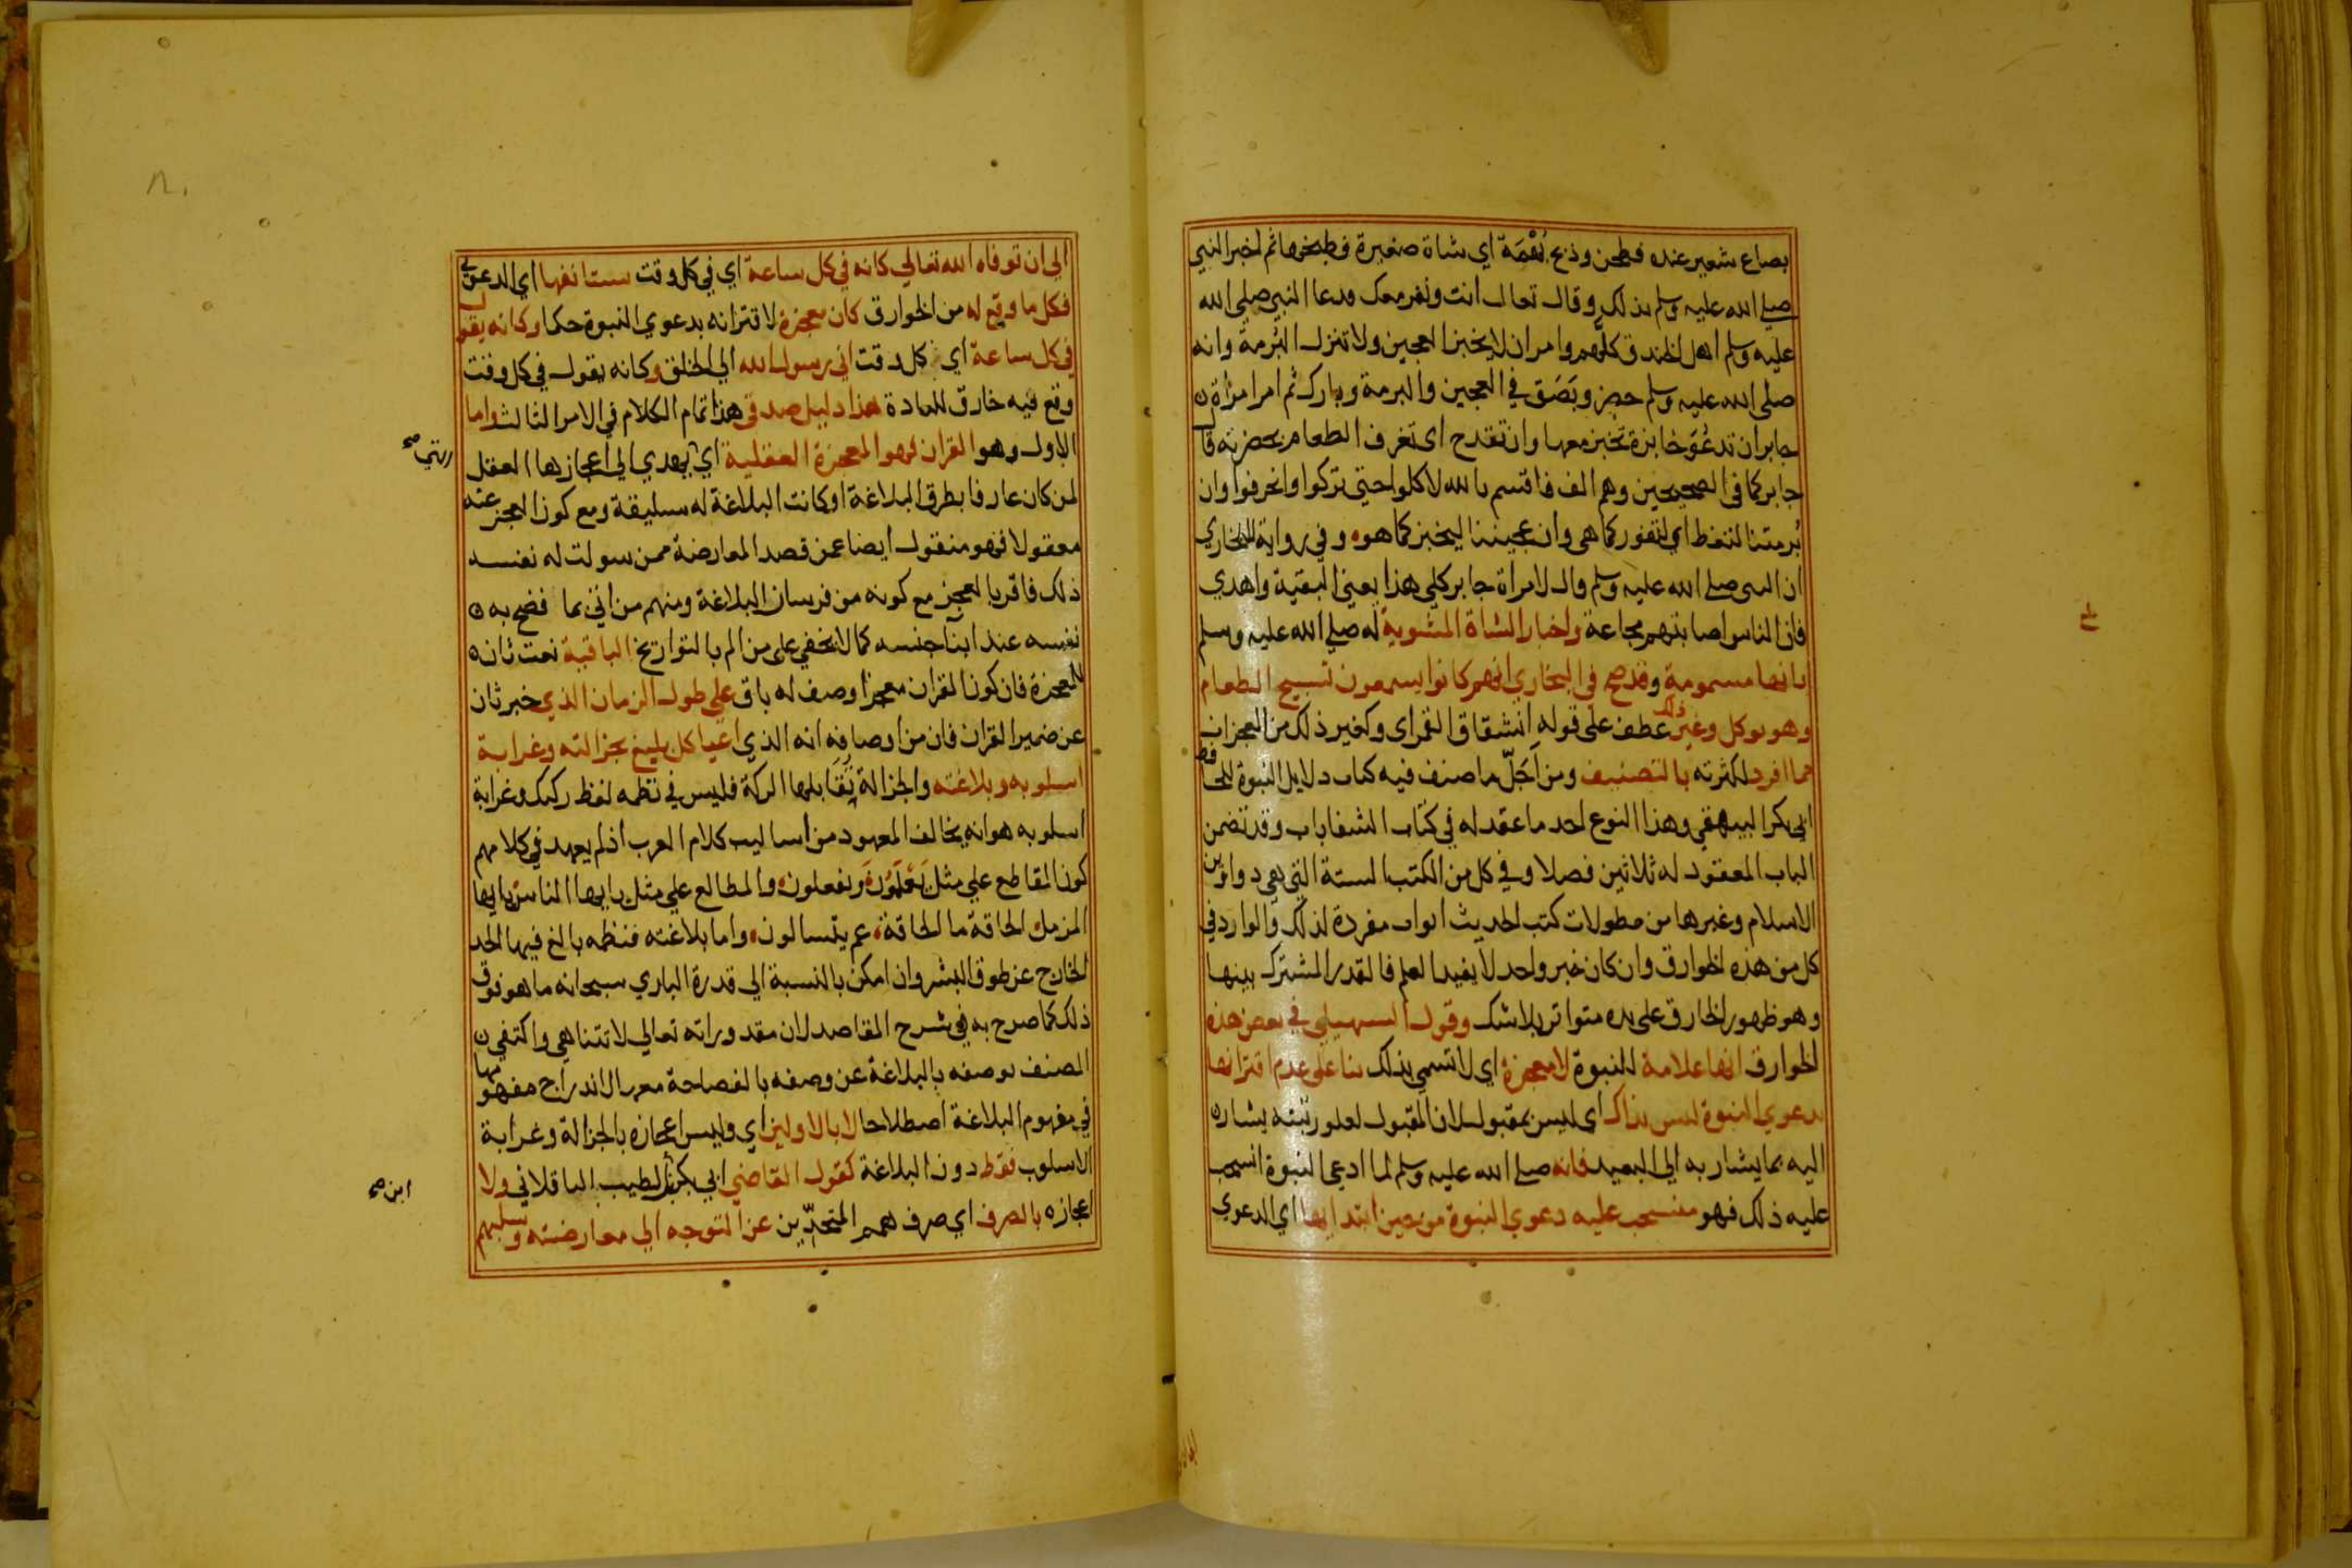 بصاع شعير عنده فطحن وذبح بُهْمَة اي شاة صغيرة فطبخها ثم اخبر النبي
صلى الله عليه وسلم بذلك وقال تعال انت ونفر معك فدعا النبي صلى الله
عليه وسلم اهل الخندق كلهم وامر ان لا يخبز العجين ولا تنزل البرمة وانه
صلى الله عليه وسلم حضر وبَصَق في العجين والبرمة وبارك ثم امر امراة
جابر ان تدعُوَ خابزة تخبز معها وان تقدح اي تغرف الطعام بحضرته قال
جابر كما في الصحيحين وهم الف فاقسم بالله لاكلوا حتى تركوا وانحرفوا وان
بُرمتنا لتغط اي لتفور كما هي وان عجيننا ليخبز كما هو وفي رواية للبخاري
ان النبي صلى الله عليه وسلم قال لامراة جابر كلي هذا يعني البقية واهدي
فان الناس اصابتهم مجاعة واخبار الشاة المشوية له صلى الله عليه وسلم
بانها مسمومة وقد صح في البخاري انهم كانوا يسمعون تسبيح الطعام
وهو يوكل وغير ذلك عطف على قوله انشقاق القمر اي وكغير ذلك من المعجزات
مما افرد لكثرته بالتصنيف ومن اَجَلّ ما صنف فيه كتاب دلايل النبوة للحافظ
ابي بكر البيهقي وهذا النوع احد ما عقد له في كتاب الشفا باب وقد تضمن
الباب المعقود له ثلاثين فصلا وفي كل من الكتب الستة التي هي دواوين
الاسلام وغيرها من مطولات كتب الحديث ابواب مفردة لذلك والوارد في
كل من هذه الخوارق وان كان خبر واحد لا يفيد العلم فالقدر المشترك بينها
وهو ظهور الخارق على يده متواتر بلا شك وقول السهيلي في بعض هذه
الخوارق انها علامة للنبوة لا معجزة اي لا تسمى بذلك بنا على عدم اقترانها
بدعوي النبوة ليس بذاك اي ليس بمقبول لان المقبول لعلو رتبته يشار
اليه بما يشار به الى البعيد فانه صلى الله عليه وسلم لما ادعى النبوة انسحب
عليه ذلك فهو منسحب عليه دعوي النبوة من حين ابتدايها اي الدعوي
الى ان توفاه الله تعالي كانه في كل ساعة اي في كل وقت يستانفها اي الدعوي
فكل ما وقع له من الخوارق كان معجزة لاقترانه بدعوي النبوة حكما وكانه يقول
في كل ساعة اي كل وقت اني رسول الله الى الخلق وكانه يقول في كل وقت
وقع فيه خارق للعادة هذا دليل صدقي هذا تمام الكلام في الامر الثالث واما
الاول وهو القران فهو المعجزة العقلية اي يهدي الى اعجازها العقل
لمن كان عارفا بطرق البلاغة او كانت البلاغة له سليقة ومع كون العجز عنه
معقولا فهو منقول ايضا عمن قصد المعارضة ممن سولت له نفسه
ذلك فاقر بالعجز مع كونه من فرسان البلاغة ومنهم من اتي بما فضح به
نفسه عند ابنا جنسه كما لا يخفى على من الم بالتواريخ الباقية نعت ثان
للمعجزة فان كون القران معجزا وصف له باق على طول الزمان الذي خبر ثان
عن ضمير القران فان من اوصافه انه الذي اعيا كل بليغ بجزالته وغرابة
اسلوبه وبلاغته والجزالة تقابلها الركة فليس في نظمه لفظ ركيك وغرابة
اسلوبه هو انه يخالف المعهود من اساليب كلام العرب اذ لم يعهد في كلامهم
كون المقاطع على مثل يعلمون ويفعلون والمطالع على مثل يا ايها الناس يا ايها
المزمل الحاقة ما الحاقة عم يتسالون واما بلاغته فنظمه بالغ فيها الحد
الخارج عن طوق البشر وان امكن بالنسبة الى قدرة الباري سبحانه ما هو فوق
ذلك كما صرح به في شرح المقاصد لان مقدوراته تعالي لا تتناهي واكتفى
المصنف بوصفه بالبلاغة عن وصفه بالفصاحة معها لاندراج مفهومها
في مفهوم البلاغة اصطلاحا لا بالاولين اي وليس اعجازه بالجزالة وغرابة
الاسلوب فقط دون البلاغة كقول القاضي ابي بكر الطيب الباقلاني ولا
اعجازه بالصرف اي صرف همم المتحدّين عن التوجه الى معارضته وسلبهم
ابن صح